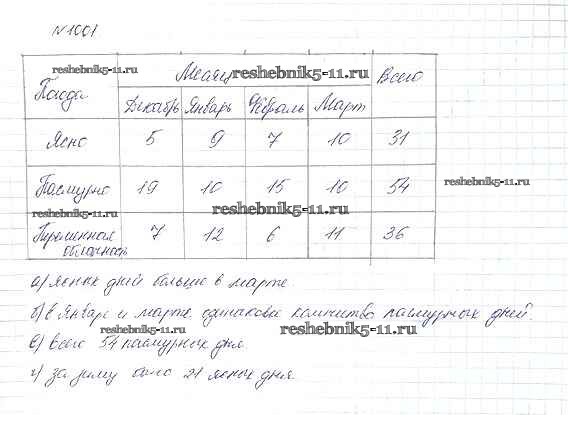 №1001
Погода Месяц Всего
Декабрь Январь Февраль Март
Ясно 5 9 7 10 31
Пасмурно 19 10 15 10 54
Переменная облачность 7 12 6 11 36
а) ясных дней больше в марте
б) в Январе и марте одинаковое количество пасмурных дней.
в) всего 54 пасмурных дня
г) за зиму было 21 ясных дня.
reshebnik5-11.ru
reshebnik5-11.ru
reshebnik5-11.ru
reshebnik5-11.ru
reshebnik5-11.ru
reshebnik5-11.ru
reshebnik5-11.ru